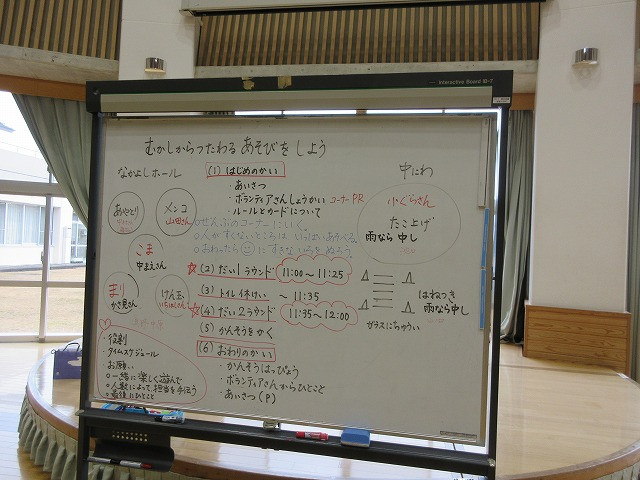 Interactive Board
むかしからつたわる あそびを しよう
なかよしホール
あやとり
メンコ
山田さん
こま
中まえさん
まり
かさ見さん
けん玉
♡
・役割
・タイムスケジュール
・お願い
○一緒に楽しく遊んで
○人数によって担当を手伝う
○最後にひとこと
(1) はじめのかい
・あいさつ
・ボランティアさんしょうかい コーナーPR
・ルールとカードについて
○ぜんぶのコーナーにいく。
○人がすくないところは いっぱいあそべる。
○おわったら☺にすきないろをぬよう。
☆(2) だい1ラウンド 11:00～11:25
(3) トイレ休けい ～11:35
☆(4) だい2ラウンド 11:35～12:00
(5) かんそうをかく
(6) おわりのかい
・かんそうはっぴょう
・ボランティアさんからひとこと
・あいさつ(P)
中にわ
小ぐらさん
たこ上げ
雨なら中し
はねつき
雨なら中し
ガラスにちゅうい